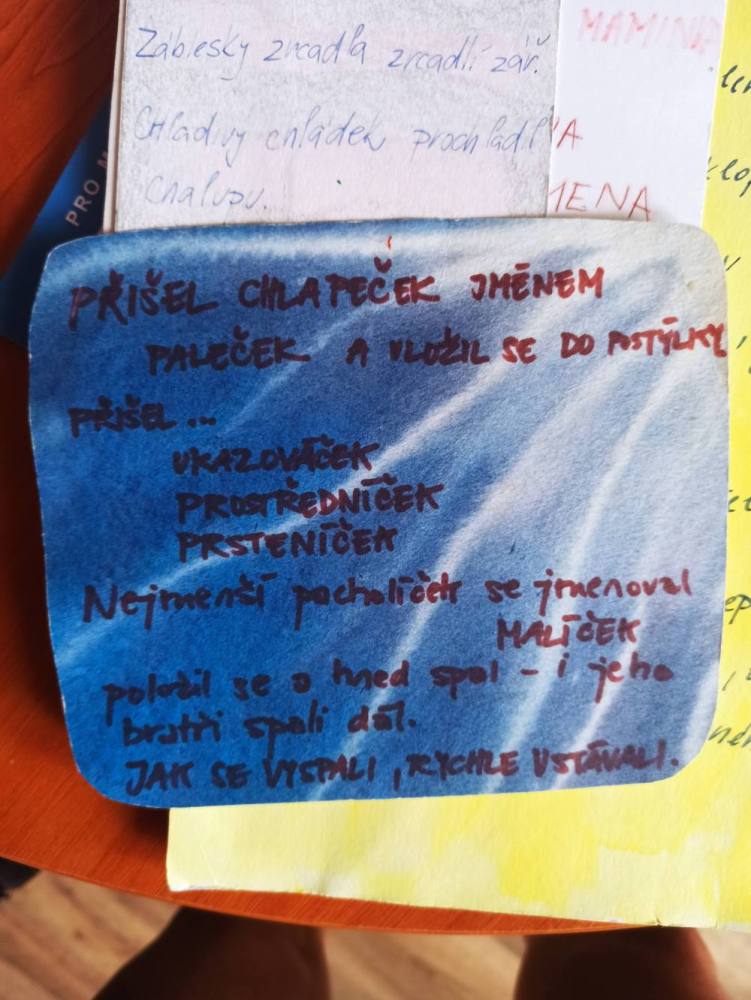 Záblesky zrcadla zrcadlí zář.
MAMINA
Chladivý chládek prochladil
chalupu.
MENA
PRO
PŘIŠEL CHLAPEČEK JMÉNEM
PALEČEK A VLOŽIL SE DO POSTÝLKY
PŘIŠEL...
UKAZOVÁČEK
PROSTŘEDNÍČEK
PRSTENÍČEK
Nejmenší pacholíček se jmenoval
MALÍČEK
položil se a hned spal - i jeho
bratři spali dál.
JAK SE VYSPALI, RYCHLE VSTÁVALI.